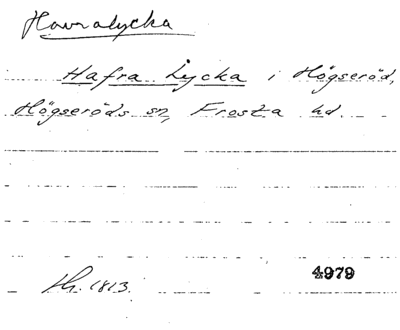 Havralycka
Hafra Lycka i Högseröd,
Högseröds sn, Frosta hd.
4979
Lh. 1813.